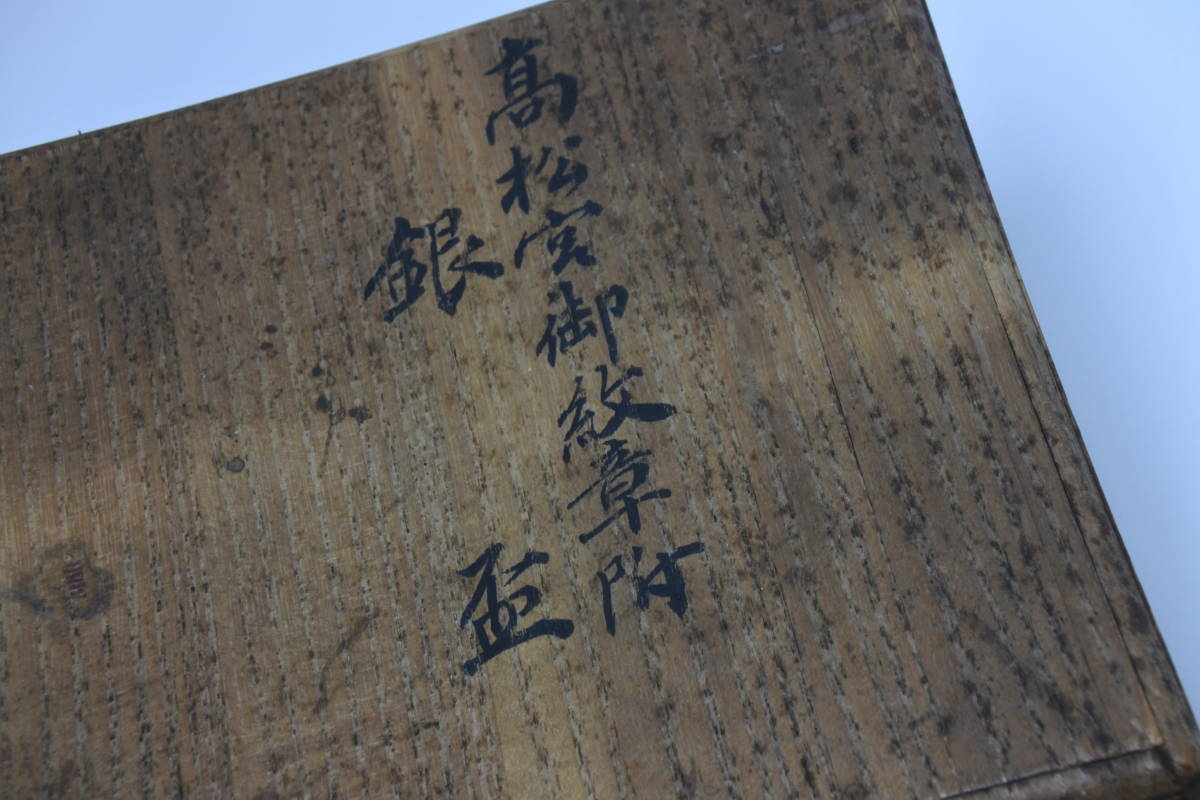 髙松宮御紋章附
銀盃